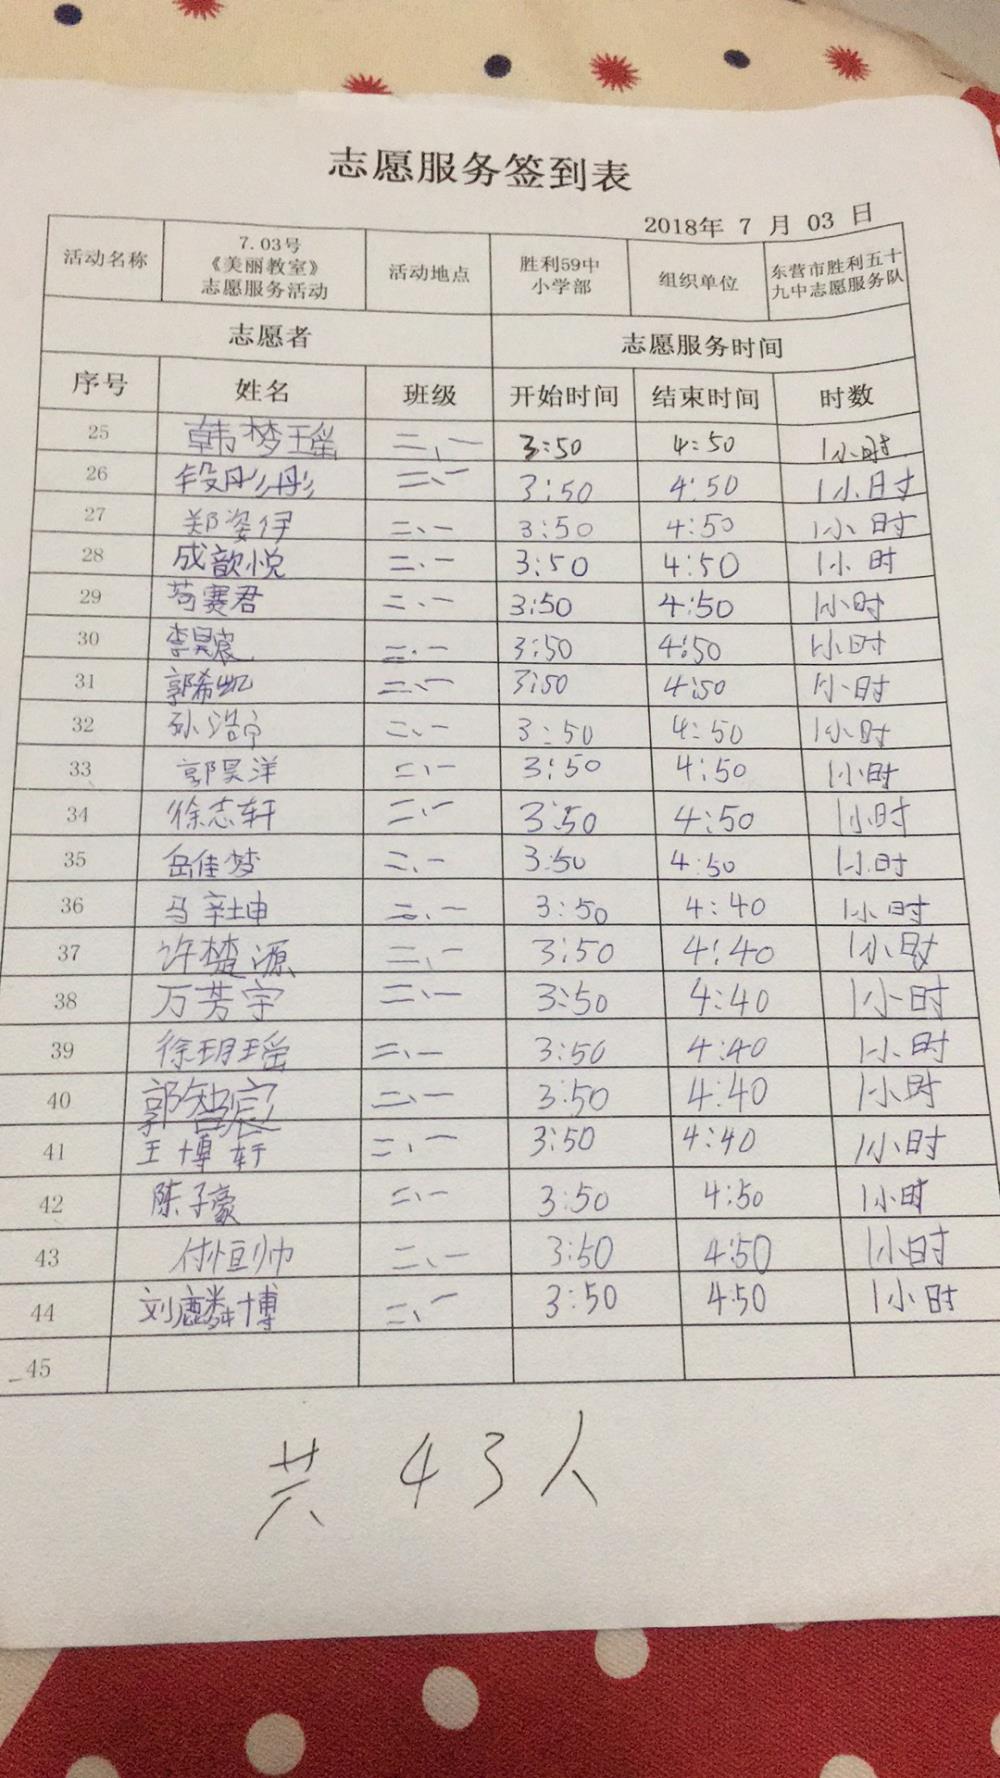 志愿服务签到表
2018年 7 月 03 日
活动名称 7.03号《美丽教室》志愿服务活动 活动地点 胜利59中小学部 组织单位 东营市胜利五十九中志愿服务队
志愿者 志愿服务时间
序号 姓名 班级 开始时间 结束时间 时数
25 韩梦瑶 二、一 3:50 4:50 1小时
26 段彤彤 二、一 3:50 4:50 1小时
27 郑姿伊 二、一 3:50 4:50 1小时
28 成歆悦 二、一 3:50 4:50 1小时
29 苟赛君 二、一 3:50 4:50 1小时
30 李昊宸 二、一 3:50 4:50 1小时
31 郭希凯 二、一 3:50 4:50 1小时
32 孙浩宁 二、一 3:50 4:50 1小时
33 郭昊洋 二、一 3:50 4:50 1小时
34 徐志轩 二、一 3:50 4:50 1小时
35 岳佳梦 二、一 3:50 4:50 1小时
36 马 坤 二、一 3:50 4:40 1小时
37 许楚源 二、一 3:50 4:40 1小时
38 万芳宇 二、一 3:50 4:40 1小时
39 徐玥瑶 二、一 3:50 4:40 1小时
40 郭智宸 二、一 3:50 4:40 1小时
41 王博轩 二、一 3:50 4:40 1小时
42 陈子豪 二、一 3:50 4:50 1小时
43 付恒帅 二、一 3:50 4:50 1小时
44 刘麟博 二、一 3:50 4:50 1小时
45
共 43人